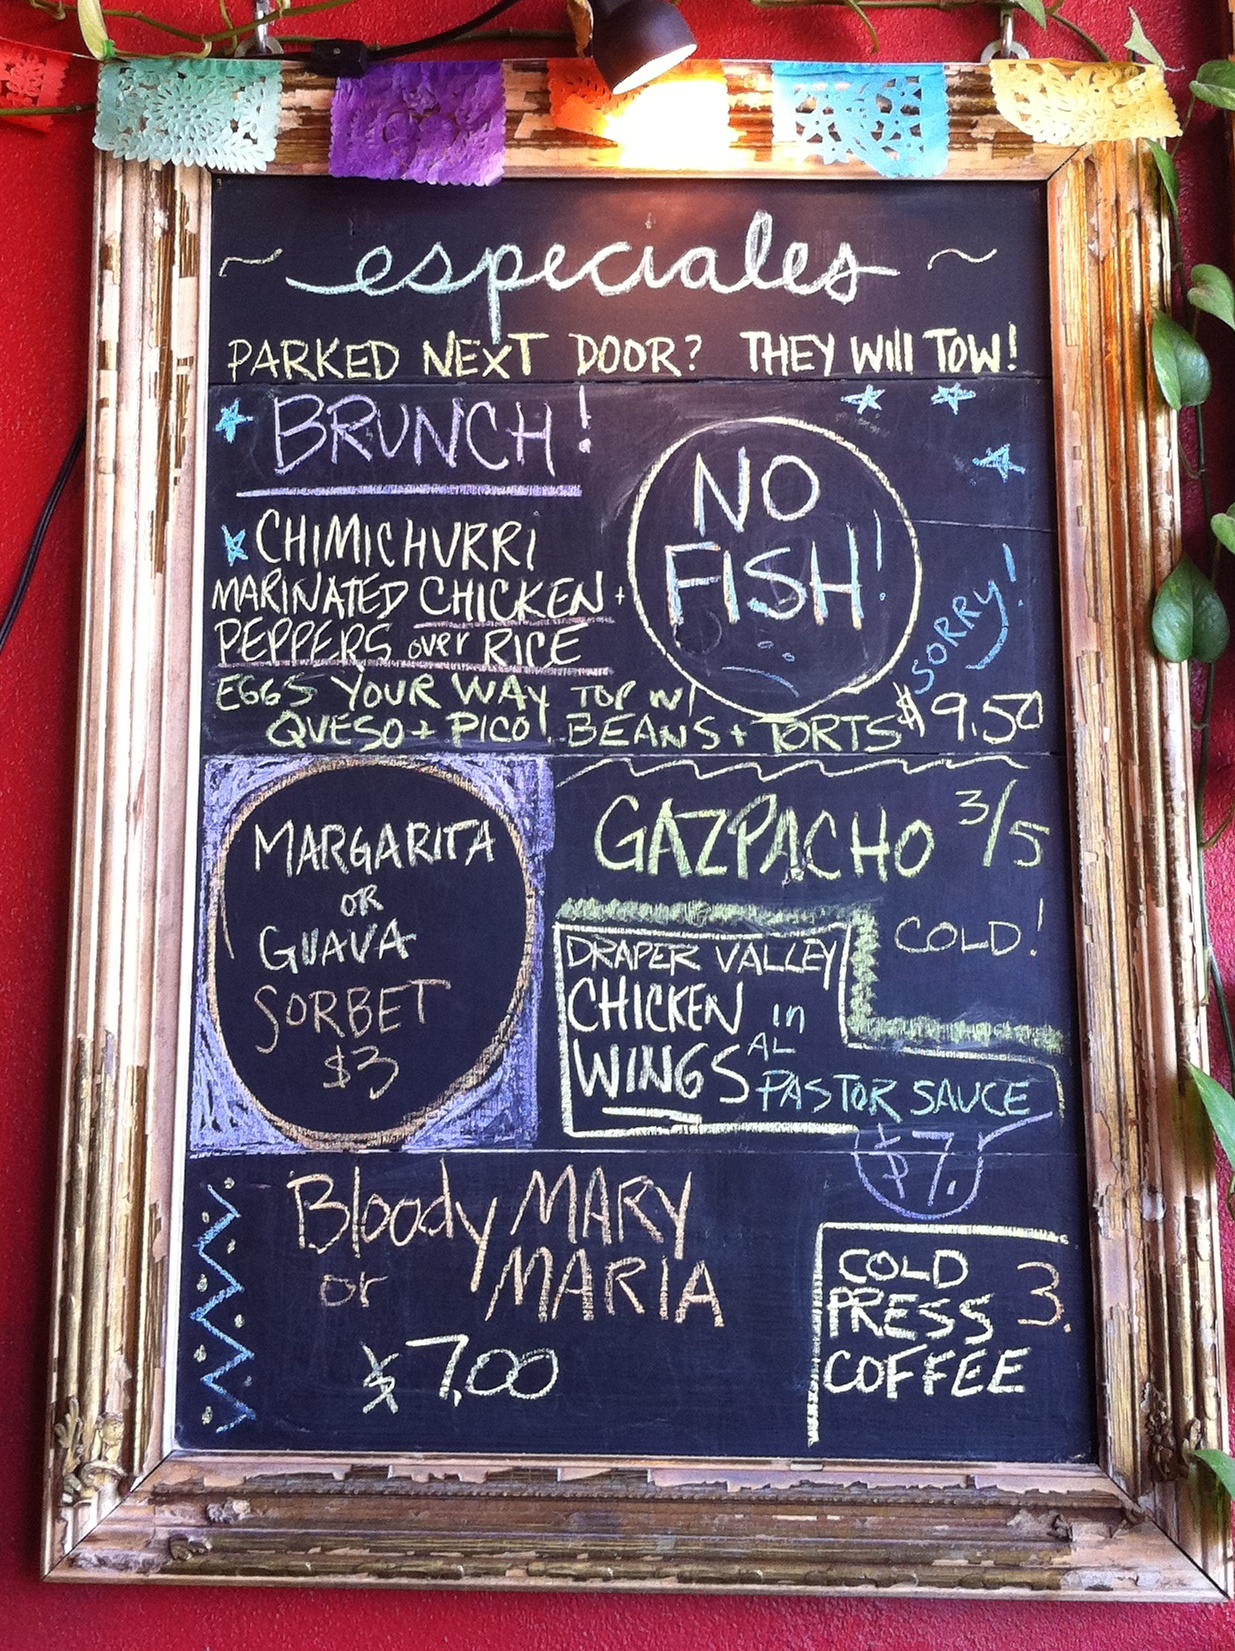 ~ especiales ~
PARKED NEXT DOOR? THEY WILL TOW!
BRUNCH!
CHIMICHURRI
MARINATED CHICKEN +
PEPPERS over RICE
EGGS YOUR WAY TOP W/
QUESO + PICO! BEANS + TORTS $9.50
NO
FISH!
SORRY!
MARGARITA
OR
GUAVA
SORBET
$3
GAZPACHO 3/5
COLD!
DRAPER VALLEY
CHICKEN in
WINGS AL
PASTOR SAUCE
$7.
Bloody MARY
or MARIA
$7.00
COLD
PRESS 3.
COFFEE